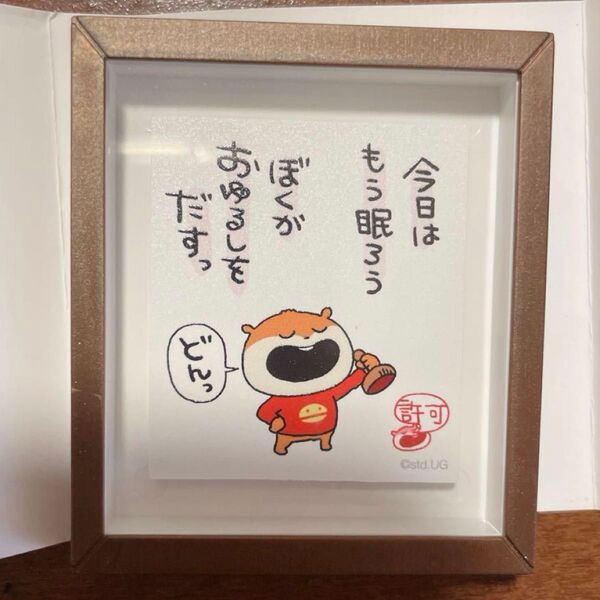 今日は
もう眠ろう
ぼくが
おゆるしを
だすっ
どんっ
許可
©std.UG